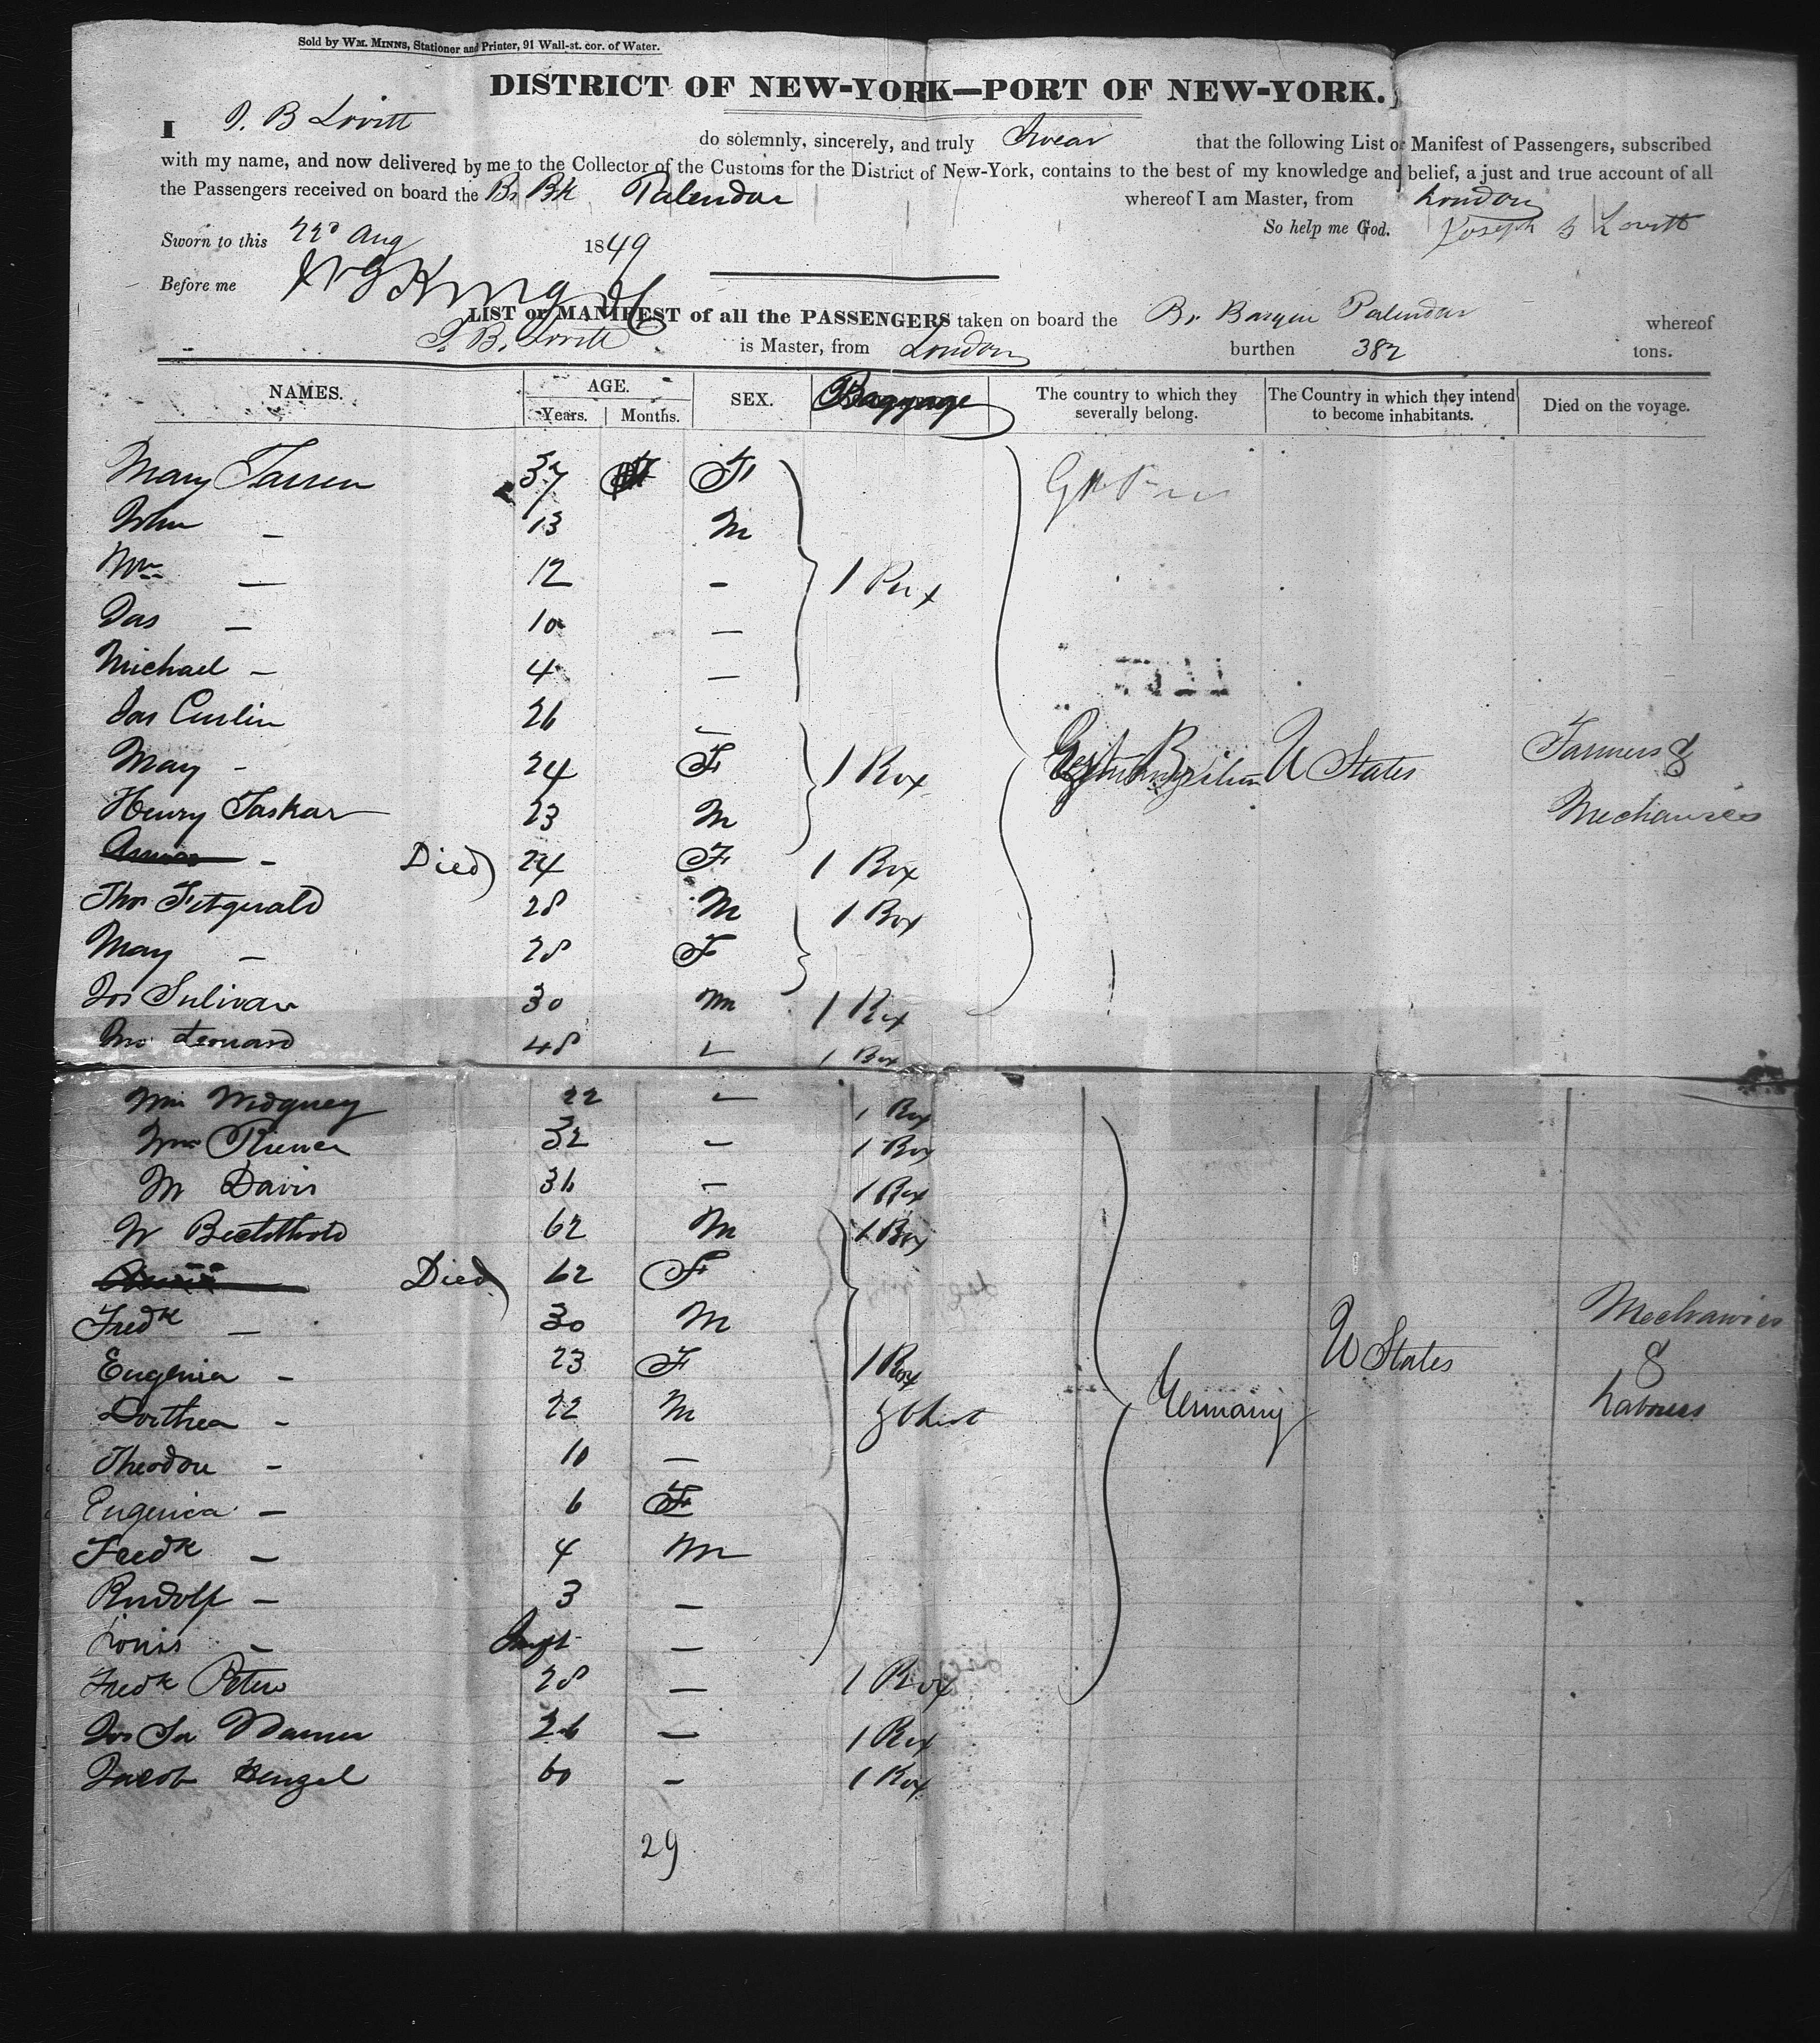 Sold by WM. MINNS, Stationer and Printer, 91 Wall-st. cor. of Water.
DISTRICT OF NEW-YORK—PORT OF NEW-YORK.
I J. B Lovitt do solemnly, sincerely, and truly Swear that the following List or Manifest of Passengers, subscribed
with my name, and now delivered by me to the Collector of the Customs for the District of New-York, contains to the best of my knowledge and belief, a just and true account of all
the Passengers received on board the Br Bk Palendar whereof I am Master, from London
So help me God. Joseph B Lovitt
Sworn to this 22d Aug 1849
Before me
LIST or MANIFEST of all the PASSENGERS taken on board the Br Barque Palendar whereof
J. B. Lovitt is Master, from London burthen 382 tons.
NAMES. AGE. Years. Months. SEX. Baggage The country to which they severally belong. The Country in which they intend to become inhabitants. Died on the voyage.
Mary 37 F
John — 13 M
Wm — 12 — 1 Box
Jas — 10 —
Michael — 4 —
Jas Curlin 26 —
Mary - 24 F 1 Box Great Britain U States Farmers &
Henry Taskar 23 M Mechanics
- Died 24 F 1 Box
Thos Fitzgerald 28 M 1 Box
Mary — 28 F
Jos Sulivan 30 M 1 Box
Leonard 48 — 1 Box
Wm 22 — 1 Box
Wm 32 — 1 Box
M Davis 36 — 1 Box
W Bechthold 62 M 1 Box
Died 62 F
Fredk — 30 M Mechanics
Eugenia - 23 F 1 Box U States &
Dorthea - 22 M Chest Germany Labourers
Theodore - 10 —
Eugenia — 6 F
Fredk — 4 M
Rudolf — 3 —
Louis — Inft —
Fredk Peters 28 — 1 Box
26 — 1 Box
Jacob Henzel 60 — 1 Box
29